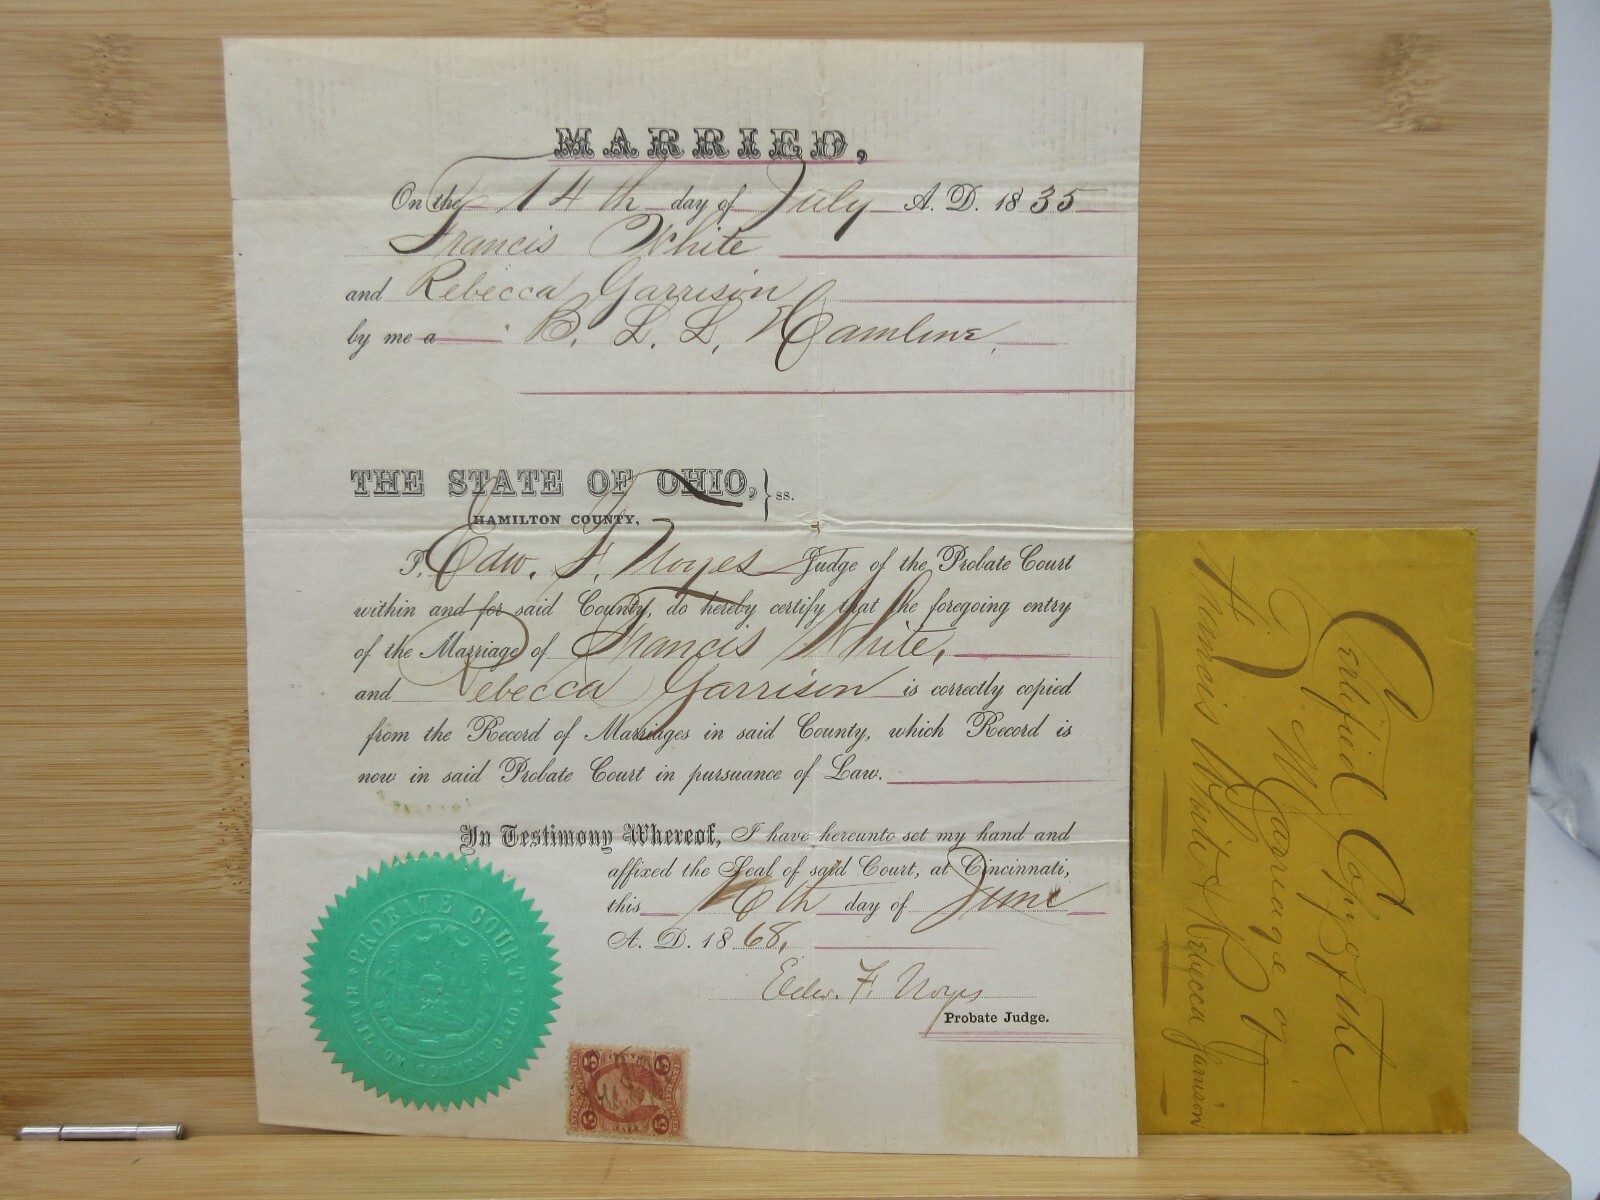 MARRIED,
On the 14th day of July A. D. 1835
Francis White
and Rebecca Garrison
by me a B. L. L. Hamline,
THE STATE OF OHIO, } ss.
HAMILTON COUNTY,
I, Edw. F. Noyes Judge of the Probate Court
within and for said County, do hereby certify that the foregoing entry
of the Marriage of Francis White,
and Rebecca Garrison is correctly copied
from the Record of Marriages in said County, which Record is
now in said Probate Court in pursuance of Law.
In Testimony Whereof, I have hereunto set my hand and
affixed the Seal of said Court, at Cincinnati,
this 16th day of June
A. D. 1868,
Edw. F. Noyes
Probate Judge.
PROBATE COURT
HAMILTON COUNTY O.
Certified Copy of the
Marriage of
Francis White & Rebecca Garrison